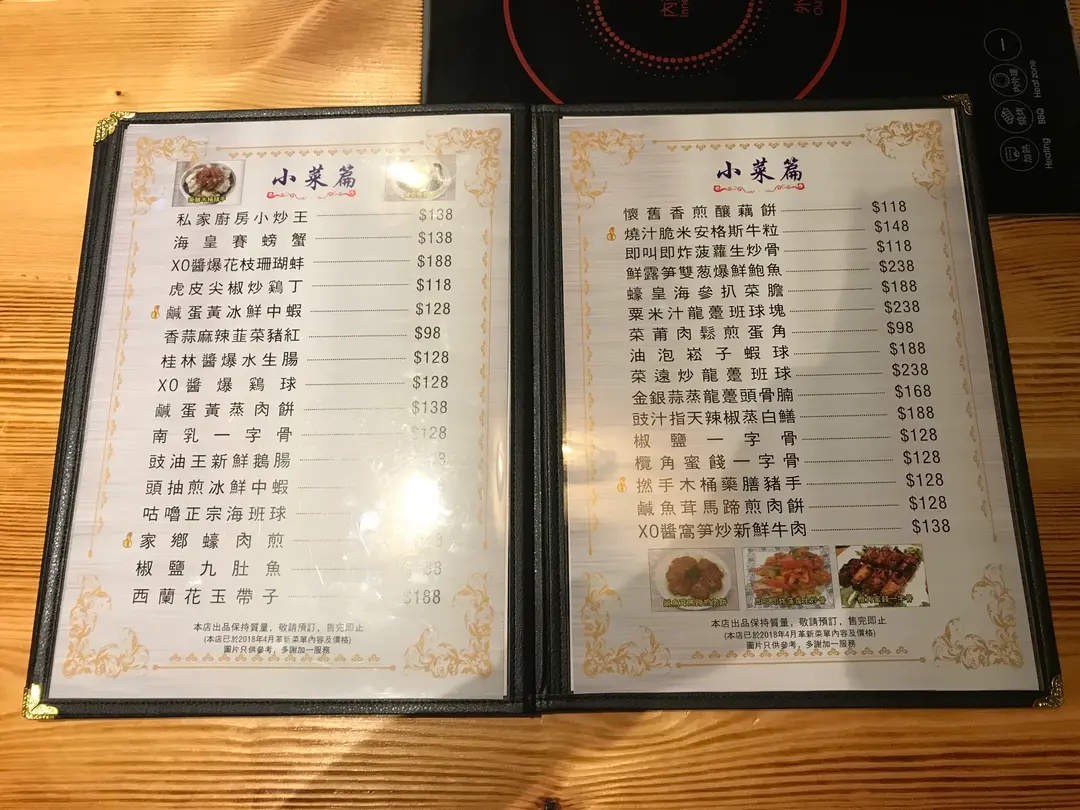 小菜篇
私家廚房小炒王 $138
海皇賽螃蟹 $138
XO醬爆花枝珊瑚蚌 $188
虎皮尖椒炒鷄丁 $118
鹹蛋黃冰鮮中蝦 $128
香蒜麻辣韮菜豬紅 $98
桂林醬爆水生腸 $128
XO醬爆鷄球 $128
鹹蛋黃蒸肉餅 $138
南乳一字骨 $128
豉油王新鮮鵝腸
頭抽煎冰鮮中蝦
咕嚕正宗海班球
家鄉蠔肉煎
椒鹽九肚魚
西蘭花玉帶子 $188
本店出品保持質量，敬請預訂，售完即止
(本店已於2018年4月革新菜單內容及價格)
圖片只供參考，多謝加一服務
小菜篇
懷舊香煎釀藕餅 $118
燒汁脆米安格斯牛粒 $148
即叫即炸菠蘿生炒骨 $118
鮮露笋雙葱爆鮮鮑魚 $238
蠔皇海參扒菜膽 $188
粟米汁龍躉班球塊 $238
菜莆肉鬆煎蛋角 $98
油泡崧子蝦球 $188
菜遠炒龍躉班球 $238
金銀蒜蒸龍躉頭骨腩 $168
豉汁指天辣椒蒸白鱔 $188
椒鹽一字骨 $128
欖角蜜餞一字骨 $128
撚手木桶藥膳豬手 $128
鹹魚茸馬蹄煎肉餅 $128
XO醬窩笋炒新鮮牛肉 $138
本店出品保持質量，敬請預訂，售完即止
(本店已於2018年4月革新菜單內容及價格)
圖片只供參考，多謝加一服務
內
Inne
外
Ou
內外環
Heat zone
燒烤
BBQ
加熱
Heating